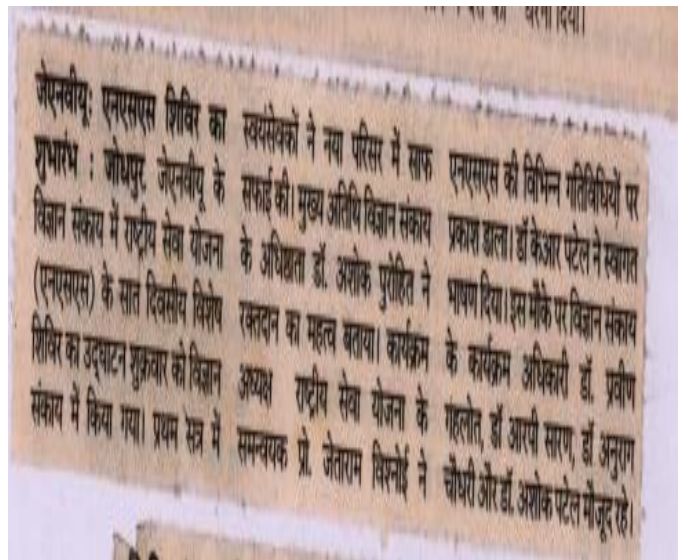 धरना दिया।
जेएनवीयू: एनएसएस शिविर का
शुभारंभ : जोधपुर. जेएनवीयू के
विज्ञान संकाय में राष्ट्रीय सेवा योजना
(एनएसएस) के सात दिवसीय विशेष
शिविर का उद्घाटन शुक्रवार को विज्ञान
संकाय में किया गया। प्रथम सत्र में
स्वयंसेवकों ने नया परिसर में साफ
सफाई की। मुख्य अतिथि विज्ञान संकाय
के अधिष्ठाता डॉ. अशोक पुरोहित ने
रक्तदान का महत्व बताया। कार्यक्रम
अध्यक्ष राष्ट्रीय सेवा योजना के
समन्वयक प्रो. जेताराम विश्नोई ने
एनएसएस की विभिन्न गतिविधियों पर
प्रकाश डाला। डॉ केआर पटेल ने स्वागत
भाषण दिया। इस मौके पर विज्ञान संकाय
के कार्यक्रम अधिकारी डॉ. प्रवीण
गहलोत, डॉ आरपी सारण, डॉ अनुराग
चौधरी और डॉ. अशोक पटेल मौजूद रहे।